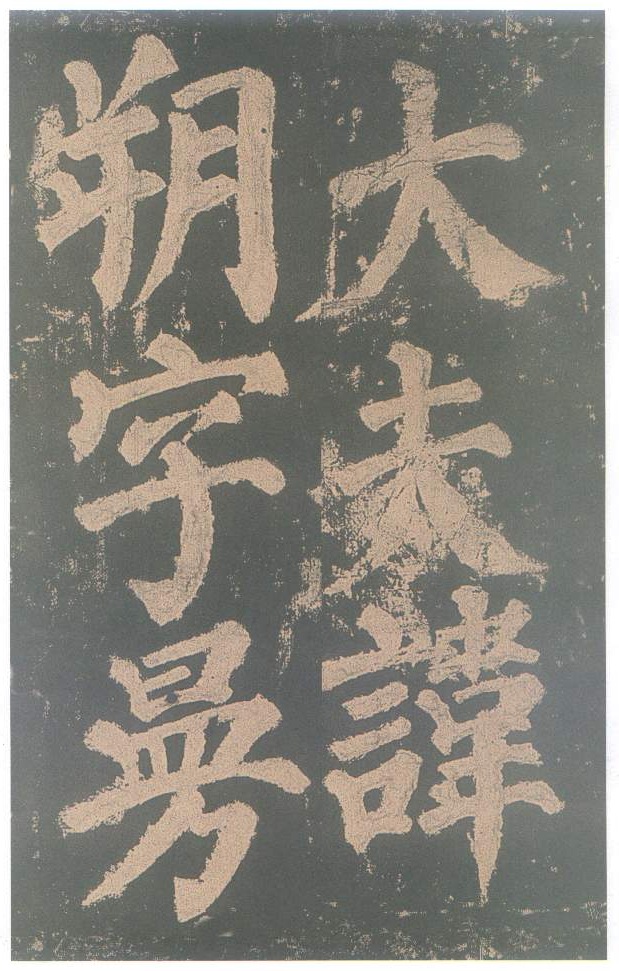 大夫諱
朔字曼